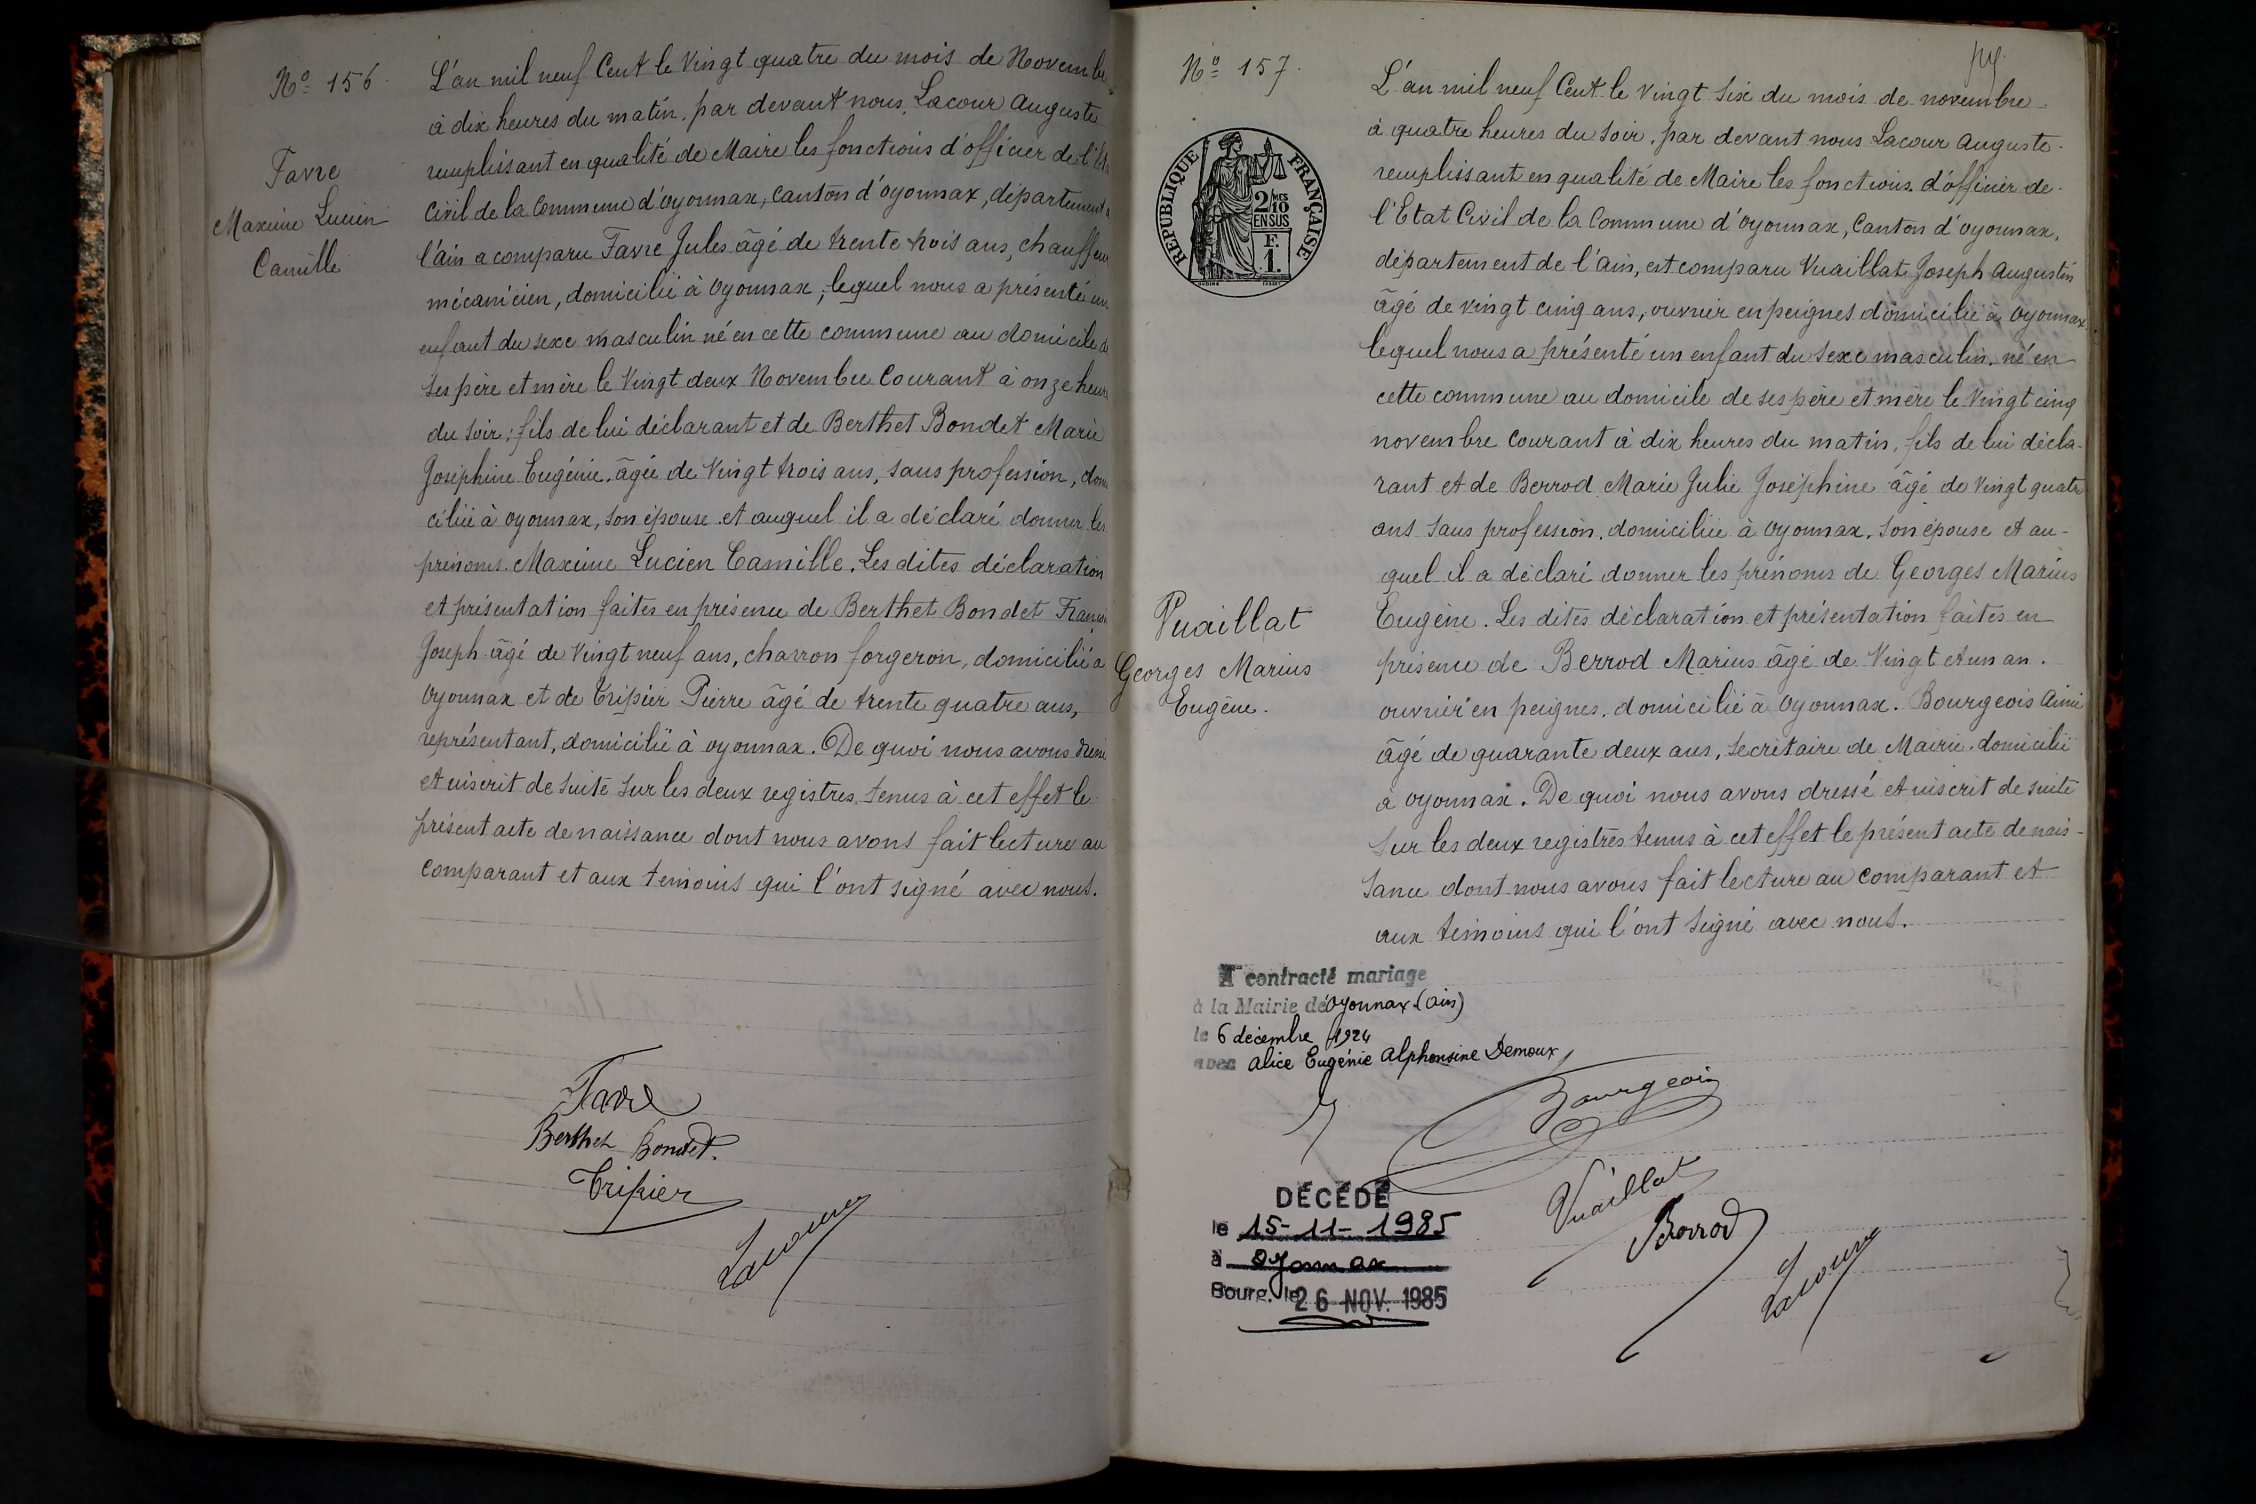 Nº 156.
Favre
Maxime Lucien
Camille
L'an mil neuf Cent le Vingt quatre du mois de Novembre
à dix heures du matin, par devant nous, Lacour Auguste
remplissant en qualité de Maire les fonctions d'officier de l'
Civil de la Commune d'oyonnax, canton d'oyonnax, département
l'ain a comparu Favre Jules âgé de trente trois ans, chauffeur
mécanicien, domicilié à Oyonnax, lequel nous a présenté un
enfant du sexe masculin né en cette commune au domicile de
ses père et mère le Vingt deux Novembre Courant à onze heures
du soir; fils de lui déclarant et de Berthet Bondet Marie
Joséphine Eugénie, âgée de Vingt trois ans, sans profession, domi
ciliée à oyonnax, son épouse et auquel il a déclaré donner les
prénoms Maxime Lucien Camille. Les dites déclaration
et présentation faites en présence de Berthet Bondet François
Joseph âgé de Vingt neuf ans, charron forgeron, domicilié à
Oyonnax et de Tripier Pierre âgé de trente quatre ans,
représentant, domicilié à oyonnax. De quoi nous avons dressé
et inscrit de suite sur les deux registres tenus à cet effet le
présent acte de naissance dont nous avons fait lecture au
comparant et aux témoins qui l'ont signé avec nous.
Favre
Berthet Bondet.
Tripier
Lacour
Nº 157.
REPUBLIQUE FRANÇAISE
2/10MES
EN SUS
F.
1.
Vuaillat
Georges Marius
Eugène.
L'an mil neuf Cent le vingt six du mois de novembre
à quatre heures du soir, par devant nous Lacour Auguste
remplissant en qualité de Maire les fonctions d'officier de
l'Etat Civil de la Commune d'oyonnax, Canton d'oyonnax,
département de l'ain, est comparu Vuaillat Joseph Augustin
âgé de vingt cinq ans, ouvrier en peignes domicilié à Oyonnax
lequel nous a présenté un enfant du sexe masculin, né en
cette commune au domicile de ses père et mère le Vingt cinq
novembre courant à dix heures du matin, fils de lui décla-
rant et de Berrod Marie Julie Joséphine âgé de Vingt quatre
ans sans profession, domiciliée à Oyonnax, son épouse et au-
quel il a déclaré donner les prénoms de Georges Marius
Eugène. Les dites déclaration et présentation faites en
présence de Berrod Marius âgé de Vingt et un an.
ouvrier en peignes, domicilié à Oyonnax. Bourgeois Aimé
âgé de quarante deux ans, secrétaire de Mairie, domicilié
à oyonnax. De quoi nous avons dressé et inscrit de suite
sur les deux registres tenus à cet effet le présent acte de nais-
sance dont nous avons fait lecture au comparant et
aux témoins qui l'ont signé avec nous.
A contracté mariage
à la Mairie de Oyonnax (Ain)
le 6 décembre 1924
avec Alice Eugénie Alphonsine Demoux
Bourgeois
Vuaillat
Berrod
Lacour
DÉCÉDÉ
le 15-11-1985
à Oyonnax
Bourg, le 26 NOV. 1985